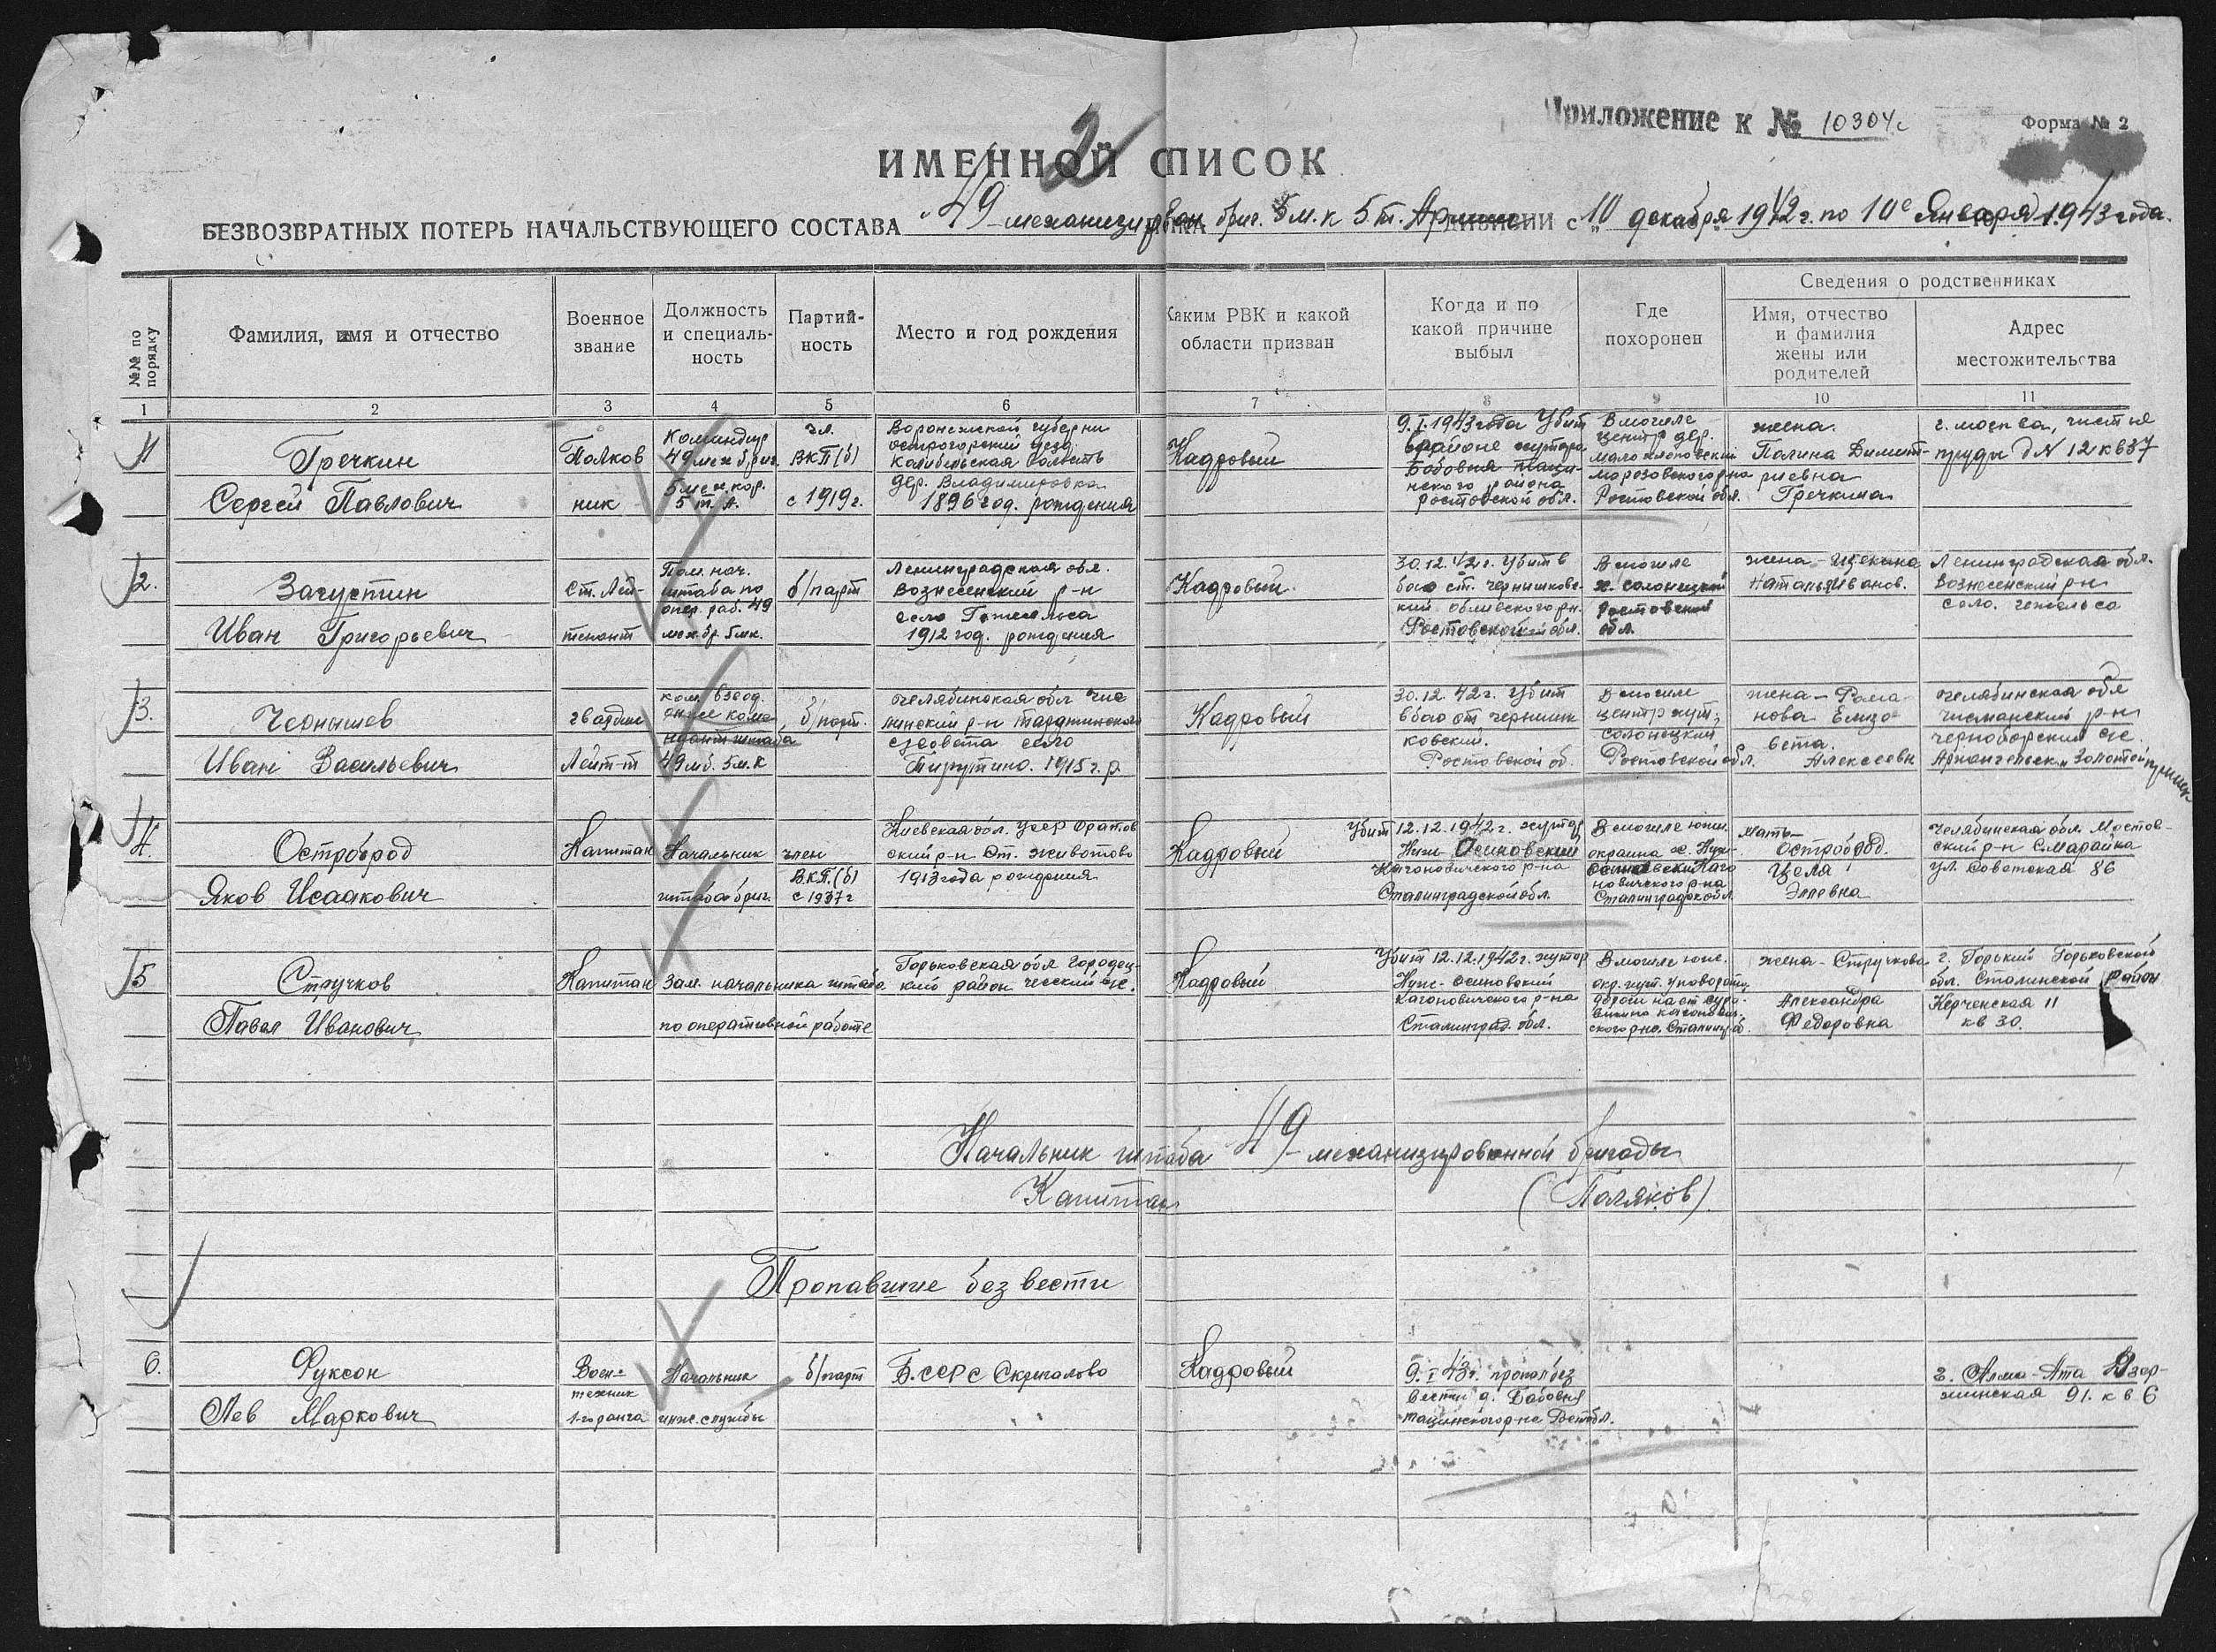 Приложение к № 10304с
Форма № 2
2
ИМЕННОЙ СПИСОК
БЕЗВОЗВРАТНЫХ ПОТЕРЬ НАЧАЛЬСТВУЮЩЕГО СОСТАВА 49 механизирован бриг. 5 м.к 5 т. Армии дивизии с 10 декабря 1942 г. по 10е Января 1943 года.
№№ по порядку
Фамилия, имя и отчество
Военное звание
Должность и специаль-ность
Партий-ность
Место и год рождения
Каким РВК и какой области призван
Когда и по какой причине выбыл
Где похоронен
Сведения о родственниках
Имя, отчество и фамилия жены или родителей
Адрес местожительства
1 2 3 4 5 6 7 8 9 10 11
1
Гречкин
Сергей Павлович
Полков
ник
Командир
49 мех бриг.
5 мех. кор.
5 т. А.
чл.
ВКП(б)
с 1919 г.
Воронежской губерни
острогорский уезд.
волость
дер. Владимировка
1896 год. рождения
Кадровый
9.I.1943 года Убит
в районе хутора
Бабовня таци-
нского района
Ростовской обл.
В могиле
центр дер.
морозовского р-на
Ростовской обл.
жена.
Полина Димит-
риевна
Гречкина
г. москва, чистые
пруды д N 12 кв 37
2.
Загустин
Иван Григорьевич
Ст. Лей-
тенант
Пом. нач.
штаба по
опер. раб. 49
мех. бр. 5 мк.
б/парт
Ленинградская обл.
Вознесенский р-н
село Гимельга
1912 год. рождения
Кадровый
30.12.42 г. Убит в
бою ст. чернышковс-
кий обливского р-н.
Ростовской обл.
В могиле
х. солонецкий
Ростовской
обл.
жена - Щекина
Наталья Иванов.
Ленинградская обл.
Вознесенский р-н
село.
3.
Чернышев
Иван Васильевич
гвардии
Лейт-т
ком. взвод.
он же коме
ндант штаба
49 мб. 5 м.к
б/парт.
Челябинская обл чис
минский р-н
с/совета село
1915 г. р
Кадровый
30.12.42 г. Убит
в бою ст чернышк
ковский.
Ростовской об.
В могиле
центр хут.
солонецкий
Ростовской обл.
жена - Рома
нова Елизо
вета.
Алексеевн
Челябинская обл
чисманский р-н
черноборский с/с.
Архангельск. Золотой прииск
4.
Остробрód
Яков Исаакович
Капитан
Начальник
штаба бриг.
член
ВКП.(б)
с 1937 г
Киевская обл. УССР Оратов
ский р-н Ст. животово
1913 года рождения
Кадровый
Убит 12.12.1942 г. хутор
Ниж- Осиновский
Кагановичского р-на
Сталинградской обл.
В могиле южн.
окраина х. Ниж-
Осиновский Кага
новичского р-на
Сталинградск обл.
мать-
Остроброд.
Целя
Элевна
Челябинская обл. Мостов-
ский р-н с Марайка
ул. Советская 86
5
Стручков
Павел Иванович
Капитан
Зам. начальника штаба
по оперативной работе
Горьковская обл городец-
кий район с/с.
Кадровый
Убит 12.12.1942 г. хутор
Ниж- осиновский
Кагановичского р-на
Сталинград. обл.
В могиле южн.
окр. хут. у поворота
дороги на ст суро-
викино каганович-
ского р-на. Сталингр об.
жена - Стручкова
Александра
Федоровна
г. Горький Горьковской
обл. Сталинской район
Керченская 11
кв 30.
Начальник штаба 49 - механизированной бригады
Капитан (Поляков)
Пропавшие без вести
6.
Фуксон
Лев Маркович
Воен-
техник
1-го ранга
Начальник
инж. службы
б/парт
Б.ССР с Скригалово
Кадровый
9.I 43 г. пропал без
вести д. Бабовня
тацинского р-на Рост обл.
г. Алма-Ата Дзер-
жинская 91. кв 6